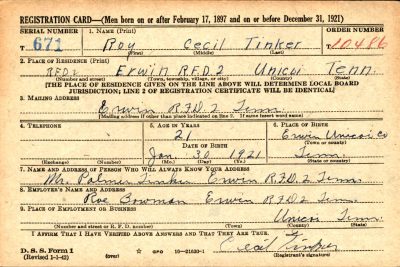 REGISTRATION CARD—(Men born on or after February 17, 1897 and on or before December 31, 1921)
SERIAL NUMBER 1. NAME (Print) ORDER NUMBER
T 671 Roy Cecil Tinker 10486
(First) (Middle) (Last)
2. PLACE OF RESIDENCE (Print)
R.F.D. 2 Erwin R.F.D. 2 Unicoi Tenn.
(Number and street) (Town, township, village, or city) (County) (State)
[THE PLACE OF RESIDENCE GIVEN ON THE LINE ABOVE WILL DETERMINE LOCAL BOARD
JURISDICTION; LINE 2 OF REGISTRATION CERTIFICATE WILL BE IDENTICAL]
3. MAILING ADDRESS
Erwin R.F.D. 2 Tenn.
[Mailing address if other than place indicated on line 2. If same insert word same]
4. TELEPHONE 5. AGE IN YEARS 6. PLACE OF BIRTH
21 Erwin Unicoi Co
DATE OF BIRTH (Town or county)
Jan. 30 1921 Tenn.
(Exchange) (Number) (Mo.) (Day) (Yr.) (State or country)
7. NAME AND ADDRESS OF PERSON WHO WILL ALWAYS KNOW YOUR ADDRESS
Mr. Palmer Tinker Erwin R.F.D. 2 Tenn.
8. EMPLOYER'S NAME AND ADDRESS
Roe Bowman Erwin R.F.D. 2 Tenn.
9. PLACE OF EMPLOYMENT OR BUSINESS
Unicoi Tenn.
(Number and street or R. F. D. number) (Town) (County) (State)
I AFFIRM THAT I HAVE VERIFIED ABOVE ANSWERS AND THAT THEY ARE TRUE.
D. S. S. Form 1
(Revised 1-1-42) (over) GPO 16—21630-1 Cecil Tinker
(Registrant's signature)